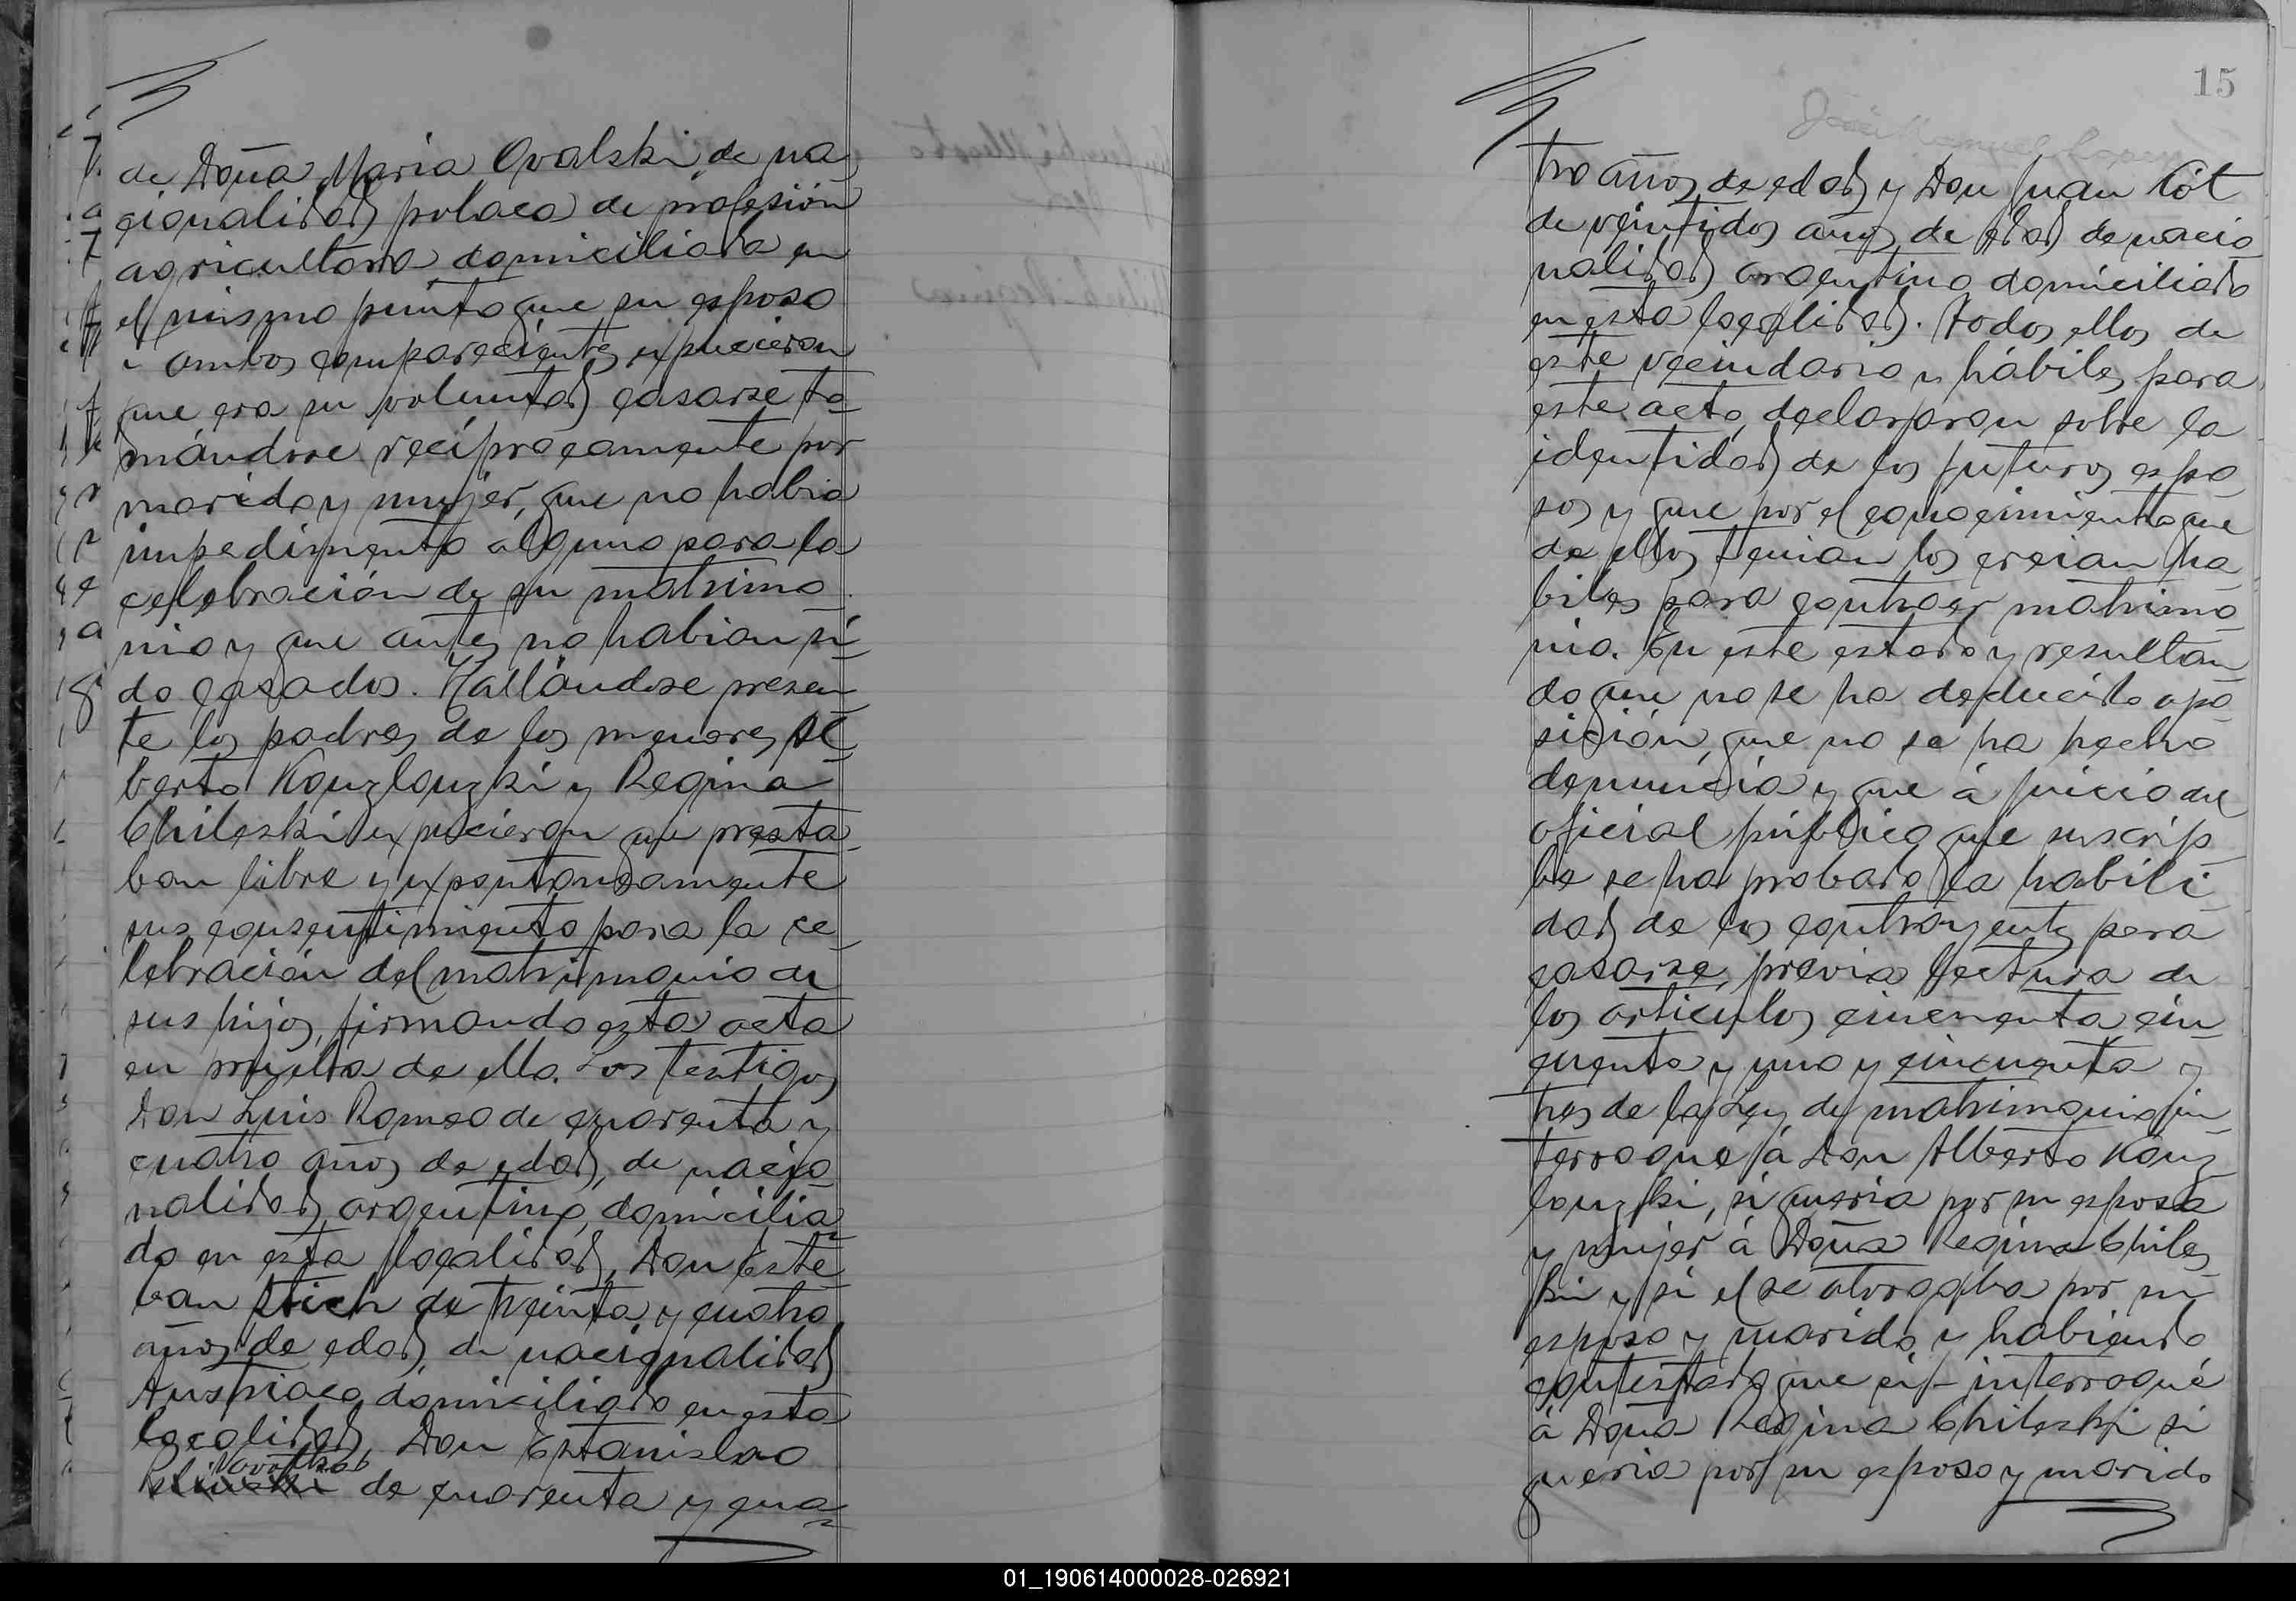 de Doña Maria Ovalski de na
cionalidad polaca de profesión
agricultora domiciliada en
el mismo punto que su esposo
i ambos comparecientes expucieron
que era su voluntad casarse to-
mándose recíprocamente por
marido y mujer, que no habia
impedimento alguno para la
celebración de su matrimo
nio y que antes no habian si-
do casados. Hallándose presen
te los padres de los menores Al
berto Kouzlouzki y Regina
Chileski expucieron que presta-
ban libre y expontaneamente
sus consentimiento para la ce-
lebración del matrimonio de
sus hijos, firmando esta acta
en prueba de ello. Los testigos
Don Luis Romeo de cuarenta y
cuatro años de edad, de nacio
nalidad argentino, domicilia
do en esta localidad, Don Este
ban Stich de treinta y cuatro
años de edad, de nacionalidad
Austriaco domiciliado en esta
localidad, Don Estanislao
de cuarenta y cua=
15
José Manuel Lopez
tro años de edad y Don Juan Cót
de veintidos años de edad de nacio
nalidad argentino domiciliado
en esta localidad. Todos ellos de
este vecindario y hábiles para
este acto, declararon sobre la
identidad de los futuros espo
sos y que por el conocimiento que
de ellos tenian los creian ha
biles para contraer matrimo
nio. En este estado y resultan
do que no se ha deducido opo
sición, que no se ha hecho
denuncia y que á juicio del
oficial público que suscrip
be se ha probado la habili
dad de los contrayentes para
casarse, previa lectura de
los articulos cincuenta cin
cuenta y uno y cincuenta y
tres de la Ley de matrimonio in
terrogué á Don Alberto Kouz
louzki, si queria por su esposa
y mujer á Doña Regina Chiles
ki y si el se otorgaba por su
esposo y marido y habiendo
contestado que si- interrogué
á Doña Regina Chileski si
queria por su esposo y marido
01_190614000028-026921